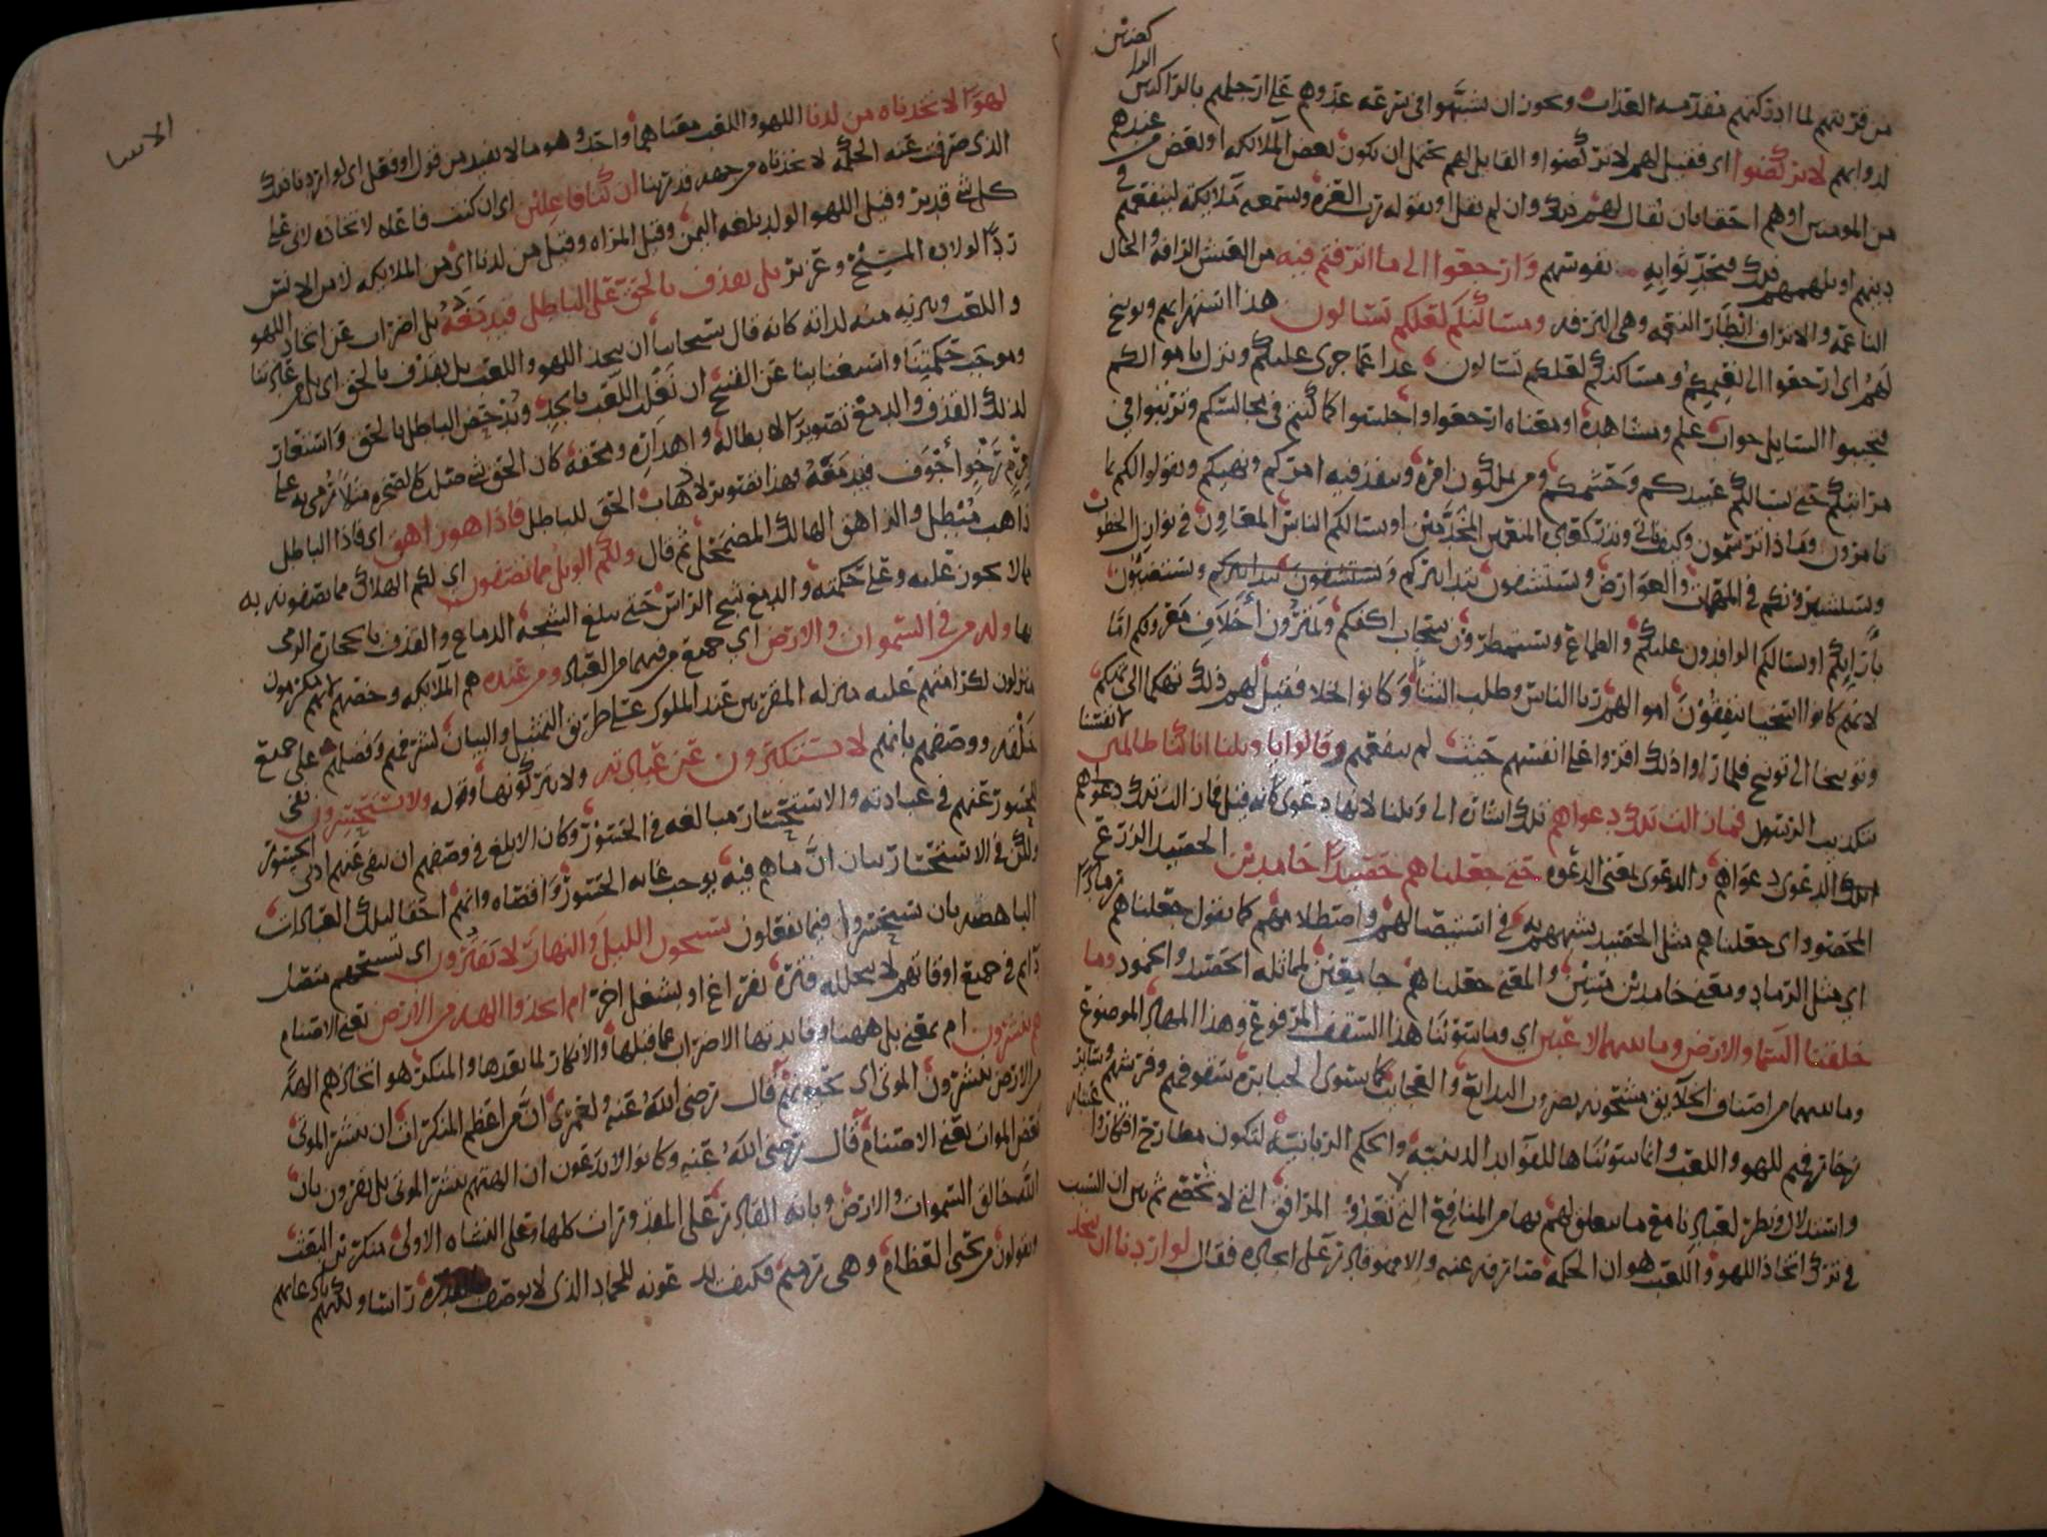 كضين
الدا
من قريتهم لما ادركتهم مقدمه العذاب ويجوز ان شبهوا في سرعه عدوهم على ارجلهم بالراكبين
لدوابهم لا تركضوا اي فقيل لهم لا تركضوا والقايل لهم يحتمل ان يكون بعض الملايكه او بعض من عندهم
من المومنين او هم احقا بان يقال لهم ذلك وان لم يقل او يقوله رب العزه ويسمعه ملايكته لينفعهم في
دينهم او يلهمهم ذلك فيحدثوا به نفوسهم وارجعوا الى ما اترفتم فيه من العيش الرافه والحال
الناعمه والاتراف ابطار النعمه وهي الترفه ومساكنكم لعلكم تسالون هذا استهزا بهم وتوبيخ
لهم اي ارجعوا الى نعيمكم ومساكنكم لعلكم تسالون غدا عما جرى عليكم ونزل باموالكم
فتجيبوا السايل جواب علم ومشاهده او معناه ارجعوا واجلسوا كما كنتم في مجالسكم وترتبوا في
مراتبكم حتى يسالكم عبيدكم وحشمكم ومن تملكون امره وينفذ فيه امركم ونهيكم ويقولوا لكم بما
تامرون وماذا ترسمون وكيف ناتي ونذر كعاده المنعمين المخدمين او يسالكم الناس المعاون في نوازل الخطوب
ويستشيرونكم في المهمات والعوارض ويستشفون بتدابيركم ويستضيئون
بارايكم او يسالكم الوافدون عليكم والطماع ويستمطرون سحاب اكفكم ويمترون اخلاف معروفكم اما
لانهم كانوا اسخيا ينفقون اموالهم ريا الناس وطلب الثنا او كانوا بخلا فقيل لهم ذلك تهكما الى تهكم
وتوبيخا الى توبيخ فلما راوا ذلك اقروا على انفسهم حيث لم ينفعهم وقالوا يا ويلنا انا كنا ظالمين انفسنا
بتكذيب الرسول فما زالت تلك دعواهم تلك اشاره الى ويلنا لانها دعوى كانه قيل فما زالت تلك دعواهم
تلك الدعوى دعواهم والدعوى بمعنى الدعوه حتى جعلناهم حصيدا خامدين الحصيد الزرع
المحصود اي جعلناهم مثل الحصيد شبههم به في استيصالهم واصطلامهم كما يقول جعلناهم رمادا
اي مثل الرماد ومعنى خامدين ميتين والمعنى جعلناهم جامعين لمماثله الحصيد والخمود وما
خلقنا السما والارض وما بينهما لاعبين اي وما سوينا هذا السقف المرفوع وهذا المهاد الموضوع
وما بينهما من اصناف الخلايق مشحونه بضروب البدايع والعجايب كما يستوي الجبابره سقوفهم وفرشهم وساير
زخارفهم للهو واللعب وانما سويناها للفوايد الدينيه والحكم الربانيه لتكون مطارح افتكار واعتبار
واستدلال ونظر لعبادنا مع ما يتعلق لهم بها من المنافع التي لا تعد والمرافق التي لا تحصى ثم بين ان السبب
في ترك اتخاذ اللهو واللعب هو ان الحكمه صارفه عنه والا فهو قادر على اتخاذه فقال لو اردنا ان نتخذ
الانبيا
لهوا لاتخذناه من لدنا اللهو واللعب معناهما واحد وهو ما لا يفيد من قول او فعل اي لو اردنا ذلك
الذي صرف عنه الحكمه لاتخذناه من جهه قدرتنا ان كنا فاعلين اي ان كنت فاعله لاتخاذه لاني على
كل شي قدير وقيل اللهو الولد بلغه اليمن وقيل المراه وقيل من لدنا اي من الملايكه لا من الانس
ردا لولاده المسيح وعزير بل نقذف بالحق على الباطل فيدمغه بل اضراب عن اتخاذ اللهو
واللعب وتنزيه منه لذاته كانه قال سبحاننا ان نتخذ اللهو واللعب بل نقذف بالحق اي بل من عادتنا
وموجب حكمتنا واستغنائنا عن القبيح ان نغلب اللعب بالجد وندحض الباطل بالحق واستعار
لذلك القذف والدمغ تصويرا لابطاله واهداره ومحقه كان الحق شي صلب كالصخره مثلا رمي به على
جرم رخو اجوف فيدمغه وهذا تصوير لاذهاب الحق للباطل فاذا هو زاهق اي فاذا الباطل
ذاهب مبطل والزاهق الهالك المضمحل ثم قال ولكم الويل مما تصفون اي لكم الهلاك مما تصفونه به
مما لا يجوز عليه وعلى حكمته والدمغ شج الراس حتى يبلغ الشجه الدماغ والقذف بالحجاره الرمي
بها وله من في السموات والارض اي جميع من فيهما من العباد ومن عنده هم الملايكه وخصهم لانهم مكرمون
منزلون لكرامتهم عليه منزله المقربين عند الملوك على طريق التمثيل والبيان لشرفهم وفضلهم على جميع
خلقه ووصفهم بانهم لا يستكبرون عن عبادته ولا يتركونها وقوله ولا يستحسرون نفى
للحسور عنهم في عبادته والاستحسار مبالغه في الحسور وكان الابلغ في وصفهم ان ينفي عنهم ادنى الحسور
ولكن في الاستحسار بيان ان ما هم فيه يوجب غايه الحسور واقصاه وانهم احقا لتلك العبادات
الباهضه بان يستحسروا فيما يفعلون يسبحون الليل والنهار لا يفترون اي تسبيحهم متصل
دايم في جميع اوقاتهم لا يتخلله فتره بفراغ او بشغل اخر ام اتخذوا الهه من الارض يعني الاصنام
هم ينشرون ام بمعنى بل ههنا وفايدتها الاضراب عما قبلها والانكار لما بعدها والمنكر هو اتخاذهم الهه
من الارض ينشرون الموتى اي يحيونهم قال رضي الله عنه ولعمري ان من اعظم المنكرات ان ينشر الموتى
بعض الموات يعني الاصنام قال رضي الله عنه وكانوا لا يدعون ان الهتهم ينشر الموتى بل يقرون بان
الله خالق السموات والارض وبانه القادر على المقدورات كلها وعلى النشاه الاولى منكرين البعث
ويقولون من يحيي العظام وهي رميم فكيف يدعونه للجماد الذي لا يوصف بالقدره راسا ولكنهم بادعايهم